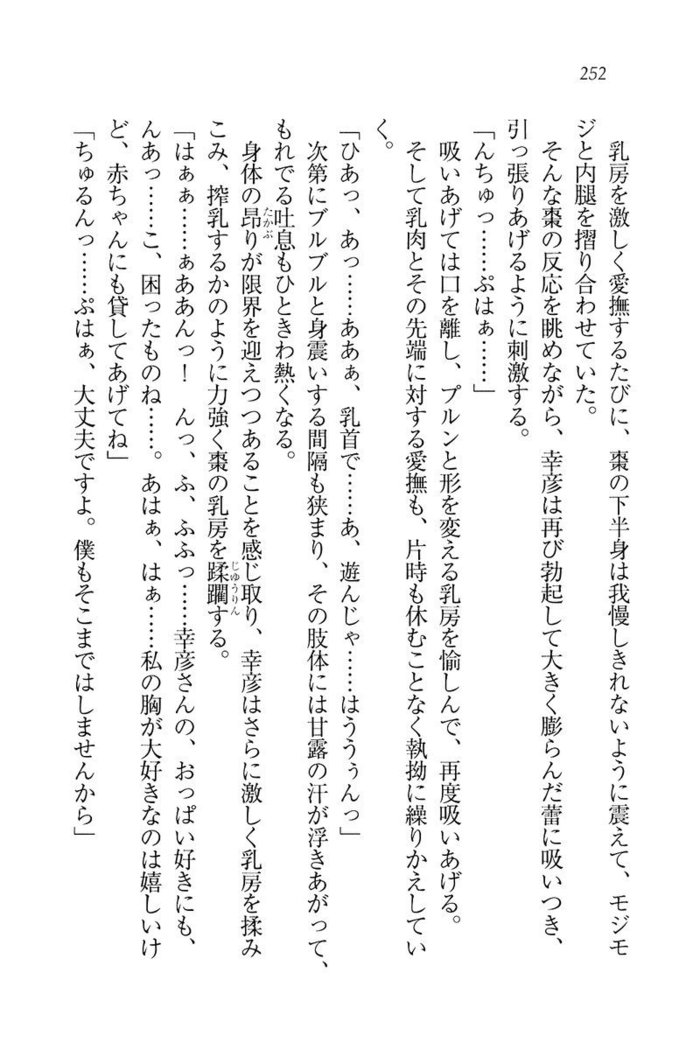 252
乳房を激しく愛撫するたびに、棗の下半身は我慢しきれないように震えて、モジモ
ジと内腿を摺り合わせていた。
そんな棗の反応を眺めながら、幸彦は再び勃起して大きく膨らんだ蕾に吸いつき、
引っ張りあげるように刺激する。
「んちゅっ……ぷはぁ……」
吸いあげては口を離し、プルンと形を変える乳房を愉しんで、再度吸いあげる。
そして乳肉とその先端に対する愛撫も、片時も休むことなく執拗に繰りかえしてい
く。
「ひあっ、あっ……ああぁ、乳首で……あ、遊んじゃ……はううぅんっ」
次第にブルブルと身震いする間隔も狭まり、その肢体には甘露の汗が浮きあがって、
もれでる吐息もひときわ熱くなる。
身体の昂りが限界を迎えつつあることを感じ取り、幸彦はさらに激しく乳房を揉み
こみ、搾乳するかのように力強く棗の乳房を蹂躙する。
「はぁぁ……ぁああんっ！　んっ、ふ、ふふっ……幸彦さんの、おっぱい好きにも、
んあっ……こ、困ったものね……。あはぁ、はぁ……私の胸が大好きなのは嬉しいけ
ど、赤ちゃんにも貸してあげてね」
「ちゅるんっ……ぷはぁ、大丈夫ですよ。僕もそこまではしませんから」